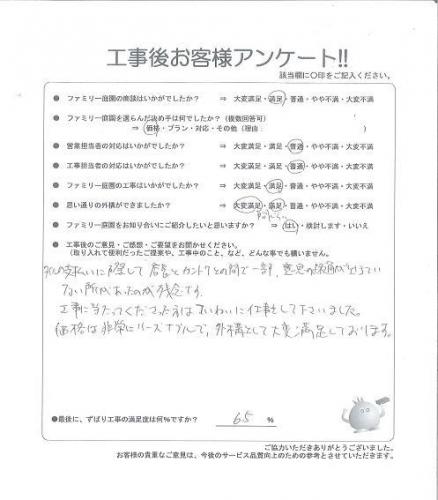 工事後お客様アンケート!!
該当欄に〇印をご記入ください。
● ファミリー庭園の商談はいかがでしたか? ⇒ 大変満足・満足・普通・やや不満・大変不満
● ファミリー庭園を選らんだ決め手は何でしたか?(複数回答可)
⇒ 価格・プラン・対応・その他(理由: )
● 営業担当者の対応はいかがでしたか? ⇒ 大変満足・満足・普通・やや不満・大変不満
● 工事担当者の対応はいかがでしたか? ⇒ 大変満足・満足・普通・やや不満・大変不満
● ファミリー庭園の工事はいかがでしたか? ⇒ 大変満足・満足・普通・やや不満・大変不満
● 思い通りの外構ができましたか? ⇒ 大変満足・満足・普通・やや不満・大変不満
● ファミリー庭園をお知り合いにご紹介したいと思いますか? ⇒ はい・検討します・いいえ
● 工事後のご意見・ご感想・ご要望をお聞かせください。
(取り入れて便利だったご提案や、工事中のこと、など、どんな事でも構いません。
支払いに際して 店長と の間で一部、意思の疎通が出来てい
ない所があったのが残念です。
工事に当たってくださった方はていねいに仕事をして下さいました。
価格は非常にリーズナブルで、外構として大変満足しております。
●最後に、ずばり工事の満足度は何%ですか? 65 %
ご協力いただきありがとうございました。
お客様の貴重なご意見は、今後のサービス品質向上のための参考とさせていただきます。